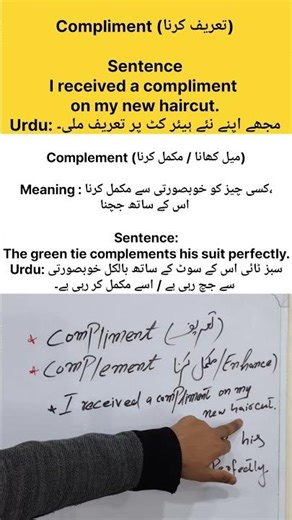 Compliment (تعریف کرنا)
Sentence
I received a compliment
on my new haircut.
Urdu: مجھے اپنے نئے ہیئر کٹ پر تعریف ملی۔
Complement (میل کھانا / مکمل کرنا)
Meaning : کسی چیز کو خوبصورتی سے مکمل کرنا،
اس کے ساتھ جچنا
Sentence:
The green tie complements his suit perfectly.
Urdu: سبز ٹائی اس کے سوٹ کے ساتھ بالکل خوبصورتی
سے جچ رہی ہے / اسے مکمل کر رہی ہے۔
* Compliment (تعریف)
* Complement (مکمل کرنا/Enhance)
* I received a compliment on my
new haircut.
his
Perfectly.